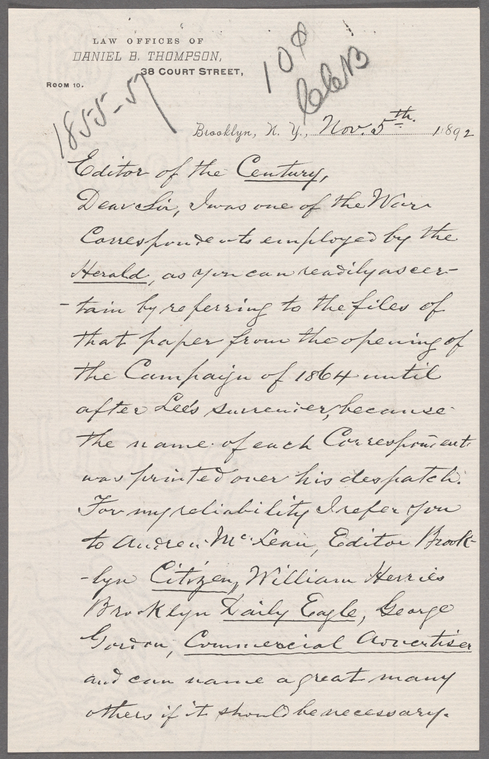 LAW OFFICES OF
DANIEL B. THOMPSON,
38 COURT STREET,
ROOM 10.
10¢
1855-57
Brooklyn, N. Y., Nov. 5th. 1892
Editor of the Century,
Dear Sir, I was one of the War
Correspondents employed by the
Herald, as you can readily ascer-
-tain by referring to the files of
that paper from the opening of
the Campaign of 1864 until
after Lee's surrender, because
the name of each Correspondent
was printed over his despatch.
For my reliability I refer you
to Andrew McLean, Editor Brook-
-lyn Citizen, William Herries
Brooklyn Daily Eagle, George
Gordon, Commercial Advertiser
and can name a great many
others if it should be necessary.